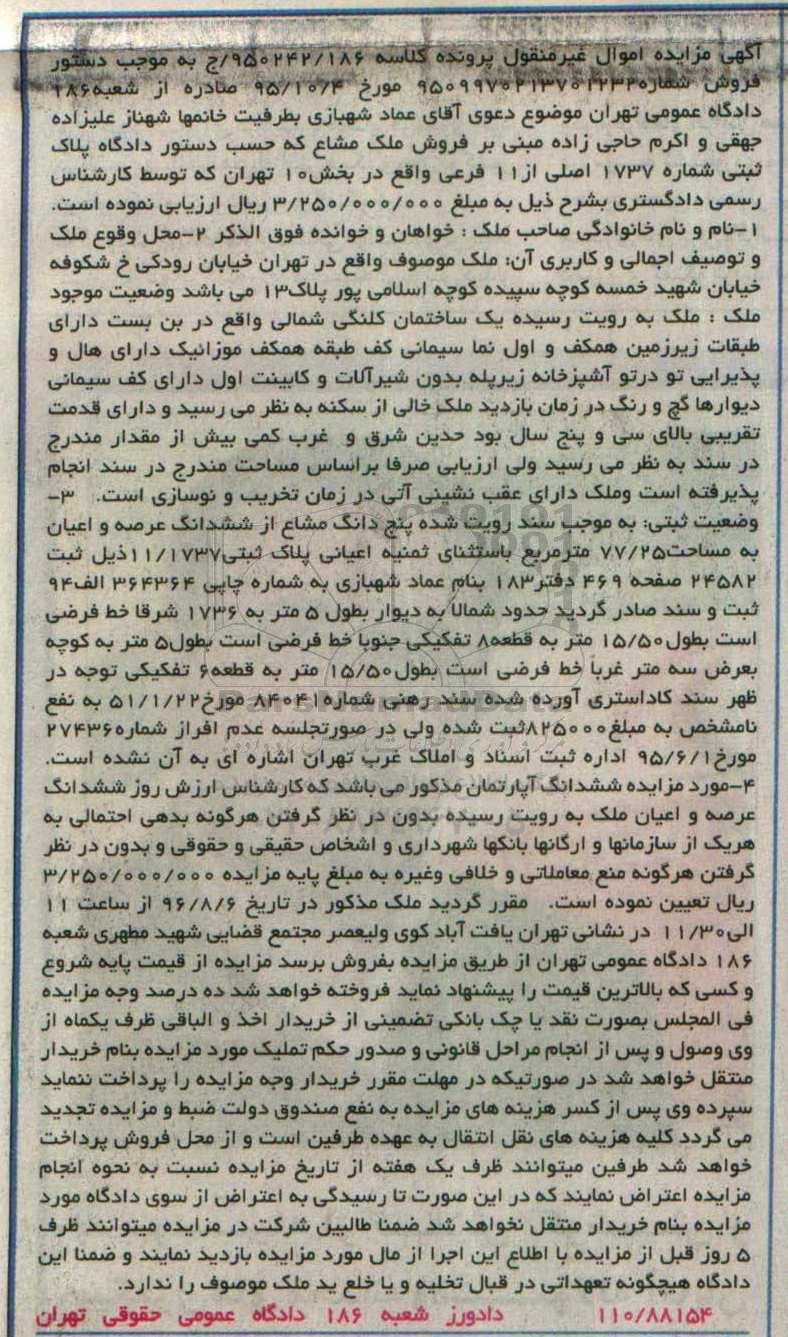 آگهی مزایده اموال غیرمنقول پرونده کلاسه ۹۵۰۲۴۲/۱۸۶/ج به موجب دستور
فروش شماره ۹۵۰۹۹۷۰۲۱۳۷۰۱۲۳۲ مورخ ۹۵/۱۰/۴ صادره از شعبه۱۸۶
دادگاه عمومی تهران موضوع دعوی آقای عماد شهبازی بطرفیت خانمها شهناز علیزاده
جهقی و اکرم حاجی زاده مبنی بر فروش ملک مشاع که حسب دستور دادگاه پلاک
ثبتی شماره ۱۷۳۷ اصلی از۱۱ فرعی واقع در بخش۱۰ تهران که توسط کارشناس
رسمی دادگستری بشرح ذیل به مبلغ ۳/۲۵۰/۰۰۰/۰۰۰ ریال ارزیابی نموده است.
۱-نام و نام خانوادگی صاحب ملک : خواهان و خوانده فوق الذکر ۲-محل وقوع ملک
و توصیف اجمالی و کاربری آن: ملک موصوف واقع در تهران خیابان رودکی خ شکوفه
خیابان شهید خمسه کوچه سپیده کوچه اسلامی پور پلاک۱۳ می باشد وضعیت موجود
ملک : ملک به رویت رسیده یک ساختمان کلنگی شمالی واقع در بن بست دارای
طبقات زیرزمین همکف و اول نما سیمانی کف طبقه همکف موزائیک دارای هال و
پذیرایی تو درتو آشپزخانه زیرپله بدون شیرآلات و کابینت اول دارای کف سیمانی
دیوارها گچ و رنگ در زمان بازدید ملک خالی از سکنه به نظر می رسید و دارای قدمت
تقریبی بالای سی و پنج سال بود حدین شرق و غرب کمی بیش از مقدار مندرج
در سند به نظر می رسید ولی ارزیابی صرفا براساس مساحت مندرج در سند انجام
پذیرفته است وملک دارای عقب نشینی آتی در زمان تخریب و نوسازی است. ۳-
وضعیت ثبتی: به موجب سند رویت شده پنج دانگ مشاع از ششدانگ عرصه و اعیان
به مساحت۷۷/۲۵ مترمربع باستثنای ثمنیه اعیانی پلاک ثبتی۱۱/۱۷۳۷ذیل ثبت
۲۴۵۸۲ صفحه ۴۶۹ دفتر۱۸۳ بنام عماد شهبازی به شماره چاپی ۳۶۴۳۶۴ الف۹۴
ثبت و سند صادر گردید حدود شمالا به دیوار بطول ۵ متر به ۱۷۳۶ شرقا خط فرضی
است بطول۱۵/۵۰ متر به قطعه۸ تفکیکی جنوبا خط فرضی است بطول۵ متر به کوچه
بعرض سه متر غربا خط فرضی است بطول۱۵/۵۰ متر به قطعه۶ تفکیکی توجه در
ظهر سند کاداستری آورده شده سند رهنی شماره۸۴۰۴۱ مورخ۵۱/۱/۲۲ به نفع
نامشخص به مبلغ۸۲۵۰۰۰ثبت شده ولی در صورتجلسه عدم افراز شماره۲۷۴۳۶
مورخ۹۵/۶/۱ اداره ثبت اسناد و املاک غرب تهران اشاره ای به آن نشده است.
۴-مورد مزایده ششدانگ آپارتمان مذکور می باشد که کارشناس ارزش روز ششدانگ
عرصه و اعیان ملک به رویت رسیده بدون در نظر گرفتن هرگونه بدهی احتمالی به
هریک از سازمانها و ارگانها بانکها شهرداری و اشخاص حقیقی و حقوقی و بدون در نظر
گرفتن هرگونه منع معاملاتی و خلافی وغیره به مبلغ پایه مزایده ۳/۲۵۰/۰۰۰/۰۰۰
ریال تعیین نموده است. مقرر گردید ملک مذکور در تاریخ ۹۶/۸/۶ از ساعت ۱۱
الی۱۱/۳۰ در نشانی تهران یافت آباد کوی ولیعصر مجتمع قضایی شهید مطهری شعبه
۱۸۶ دادگاه عمومی تهران از طریق مزایده بفروش برسد مزایده از قیمت پایه شروع
و کسی که بالاترین قیمت را پیشنهاد نماید فروخته خواهد شد ده درصد وجه مزایده
فی المجلس بصورت نقد یا چک بانکی تضمینی از خریدار اخذ و الباقی ظرف یکماه از
وی وصول و پس از انجام مراحل قانونی و صدور حکم تملیک مورد مزایده بنام خریدار
منتقل خواهد شد در صورتیکه در مهلت مقرر خریدار وجه مزایده را پرداخت ننماید
سپرده وی پس از کسر هزینه های مزایده به نفع صندوق دولت ضبط و مزایده تجدید
می گردد کلیه هزینه های نقل انتقال به عهده طرفین است و از محل فروش پرداخت
خواهد شد طرفین میتوانند ظرف یک هفته از تاریخ مزایده نسبت به نحوه انجام
مزایده اعتراض نمایند که در این صورت تا رسیدگی به اعتراض از سوی دادگاه مورد
مزایده بنام خریدار منتقل نخواهد شد ضمنا طالبین شرکت در مزایده میتوانند ظرف
۵ روز قبل از مزایده با اطلاع این اجرا از مال مورد مزایده بازدید نمایند و ضمنا این
دادگاه هیچگونه تعهداتی در قبال تخلیه و یا خلع ید ملک موصوف را ندارد.
۱۱۰/۸۸۱۵۴ دادورز شعبه ۱۸۶ دادگاه عمومی حقوقی تهران